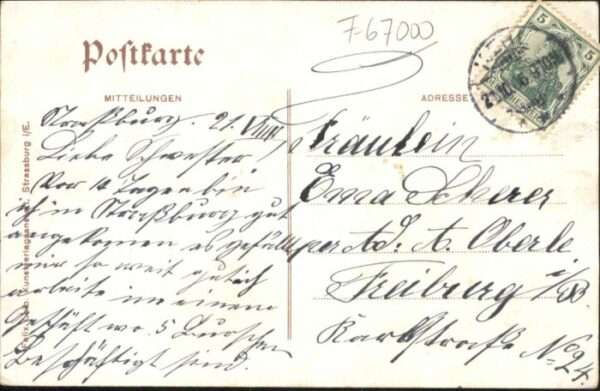 7-67000
Postkarte
MITTEILUNGEN
ADRESSE
5
Straßburg. 21.
Liebe Schwester!
Vor 14 Tagen bin
ich in Straßburg gut
angekommen es gefällt
mir so weit gut ich
arbeite in einem
Geschäft wo 5 Burschen
Beschäftigt sind.
Fräulein
Ema Scherer
per Ad. A. Oberle
Freiburg i/B
Karlstraße No 24.
Strassburg i/E.